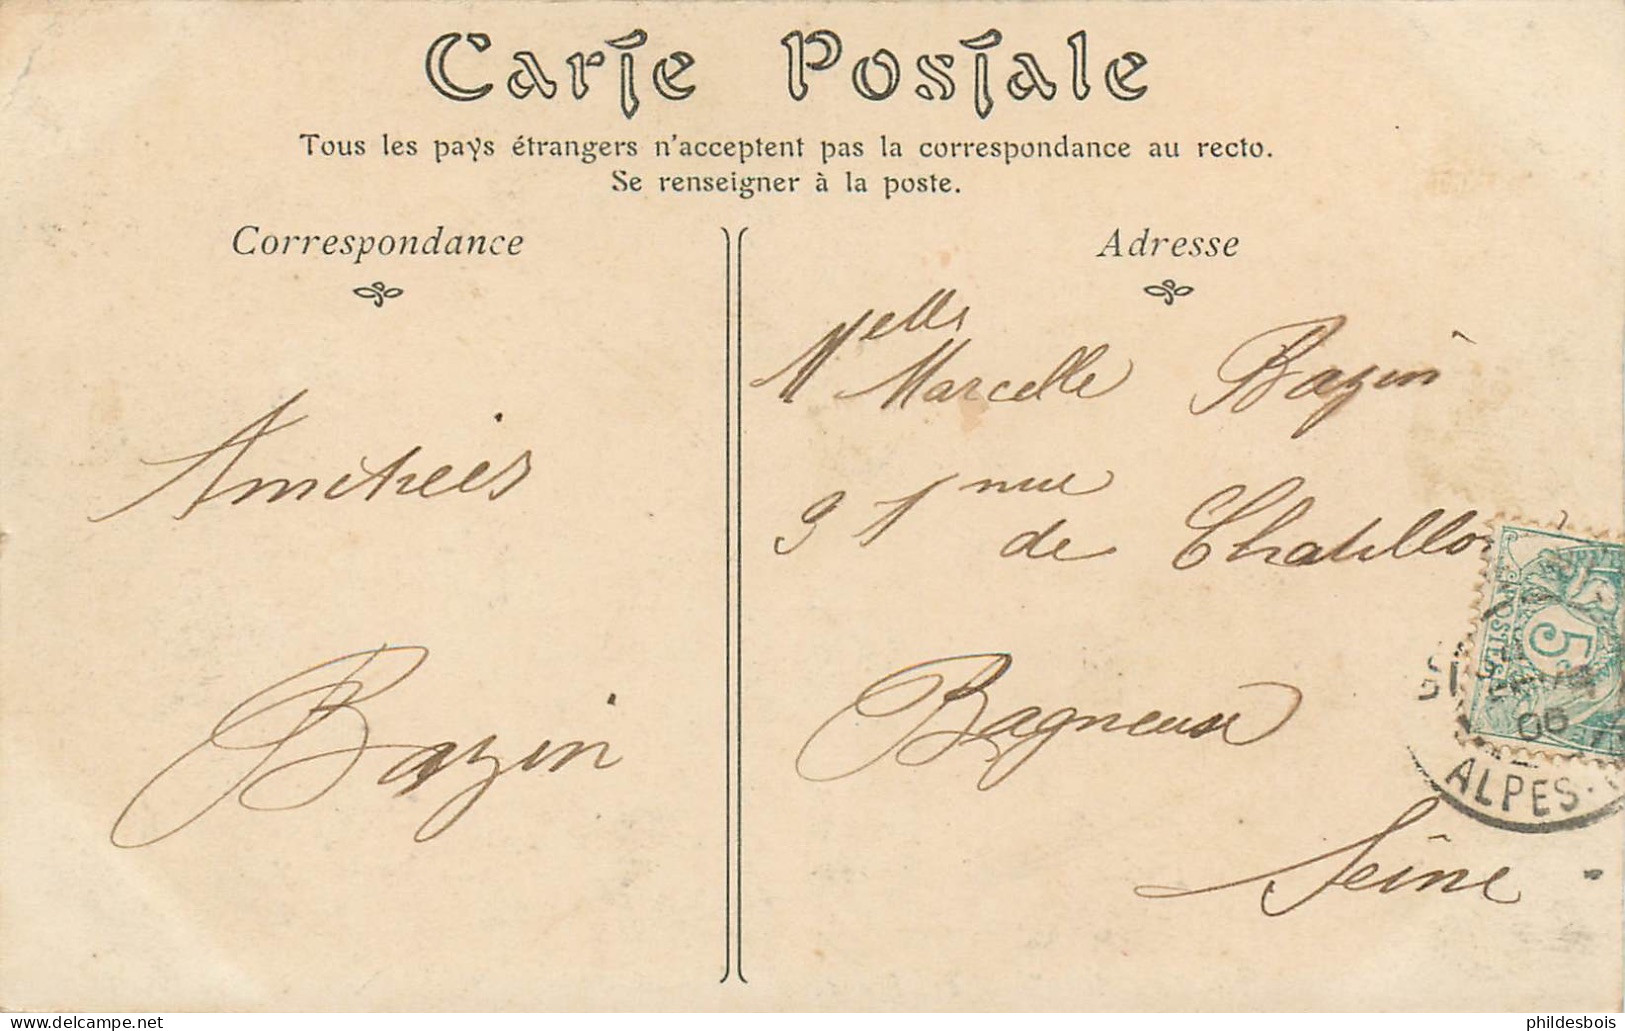 Carte Postale
Tous les pays étrangers n'acceptent pas la correspondance au recto.
Se renseigner à la poste.
Correspondance
Adresse
Melle Marcelle Bazin
Amitiées
de Chatillon
Bazin
Bagneux
Seine
POSTES
5c
06
ALPES
www.delcampe.net
phildesbois